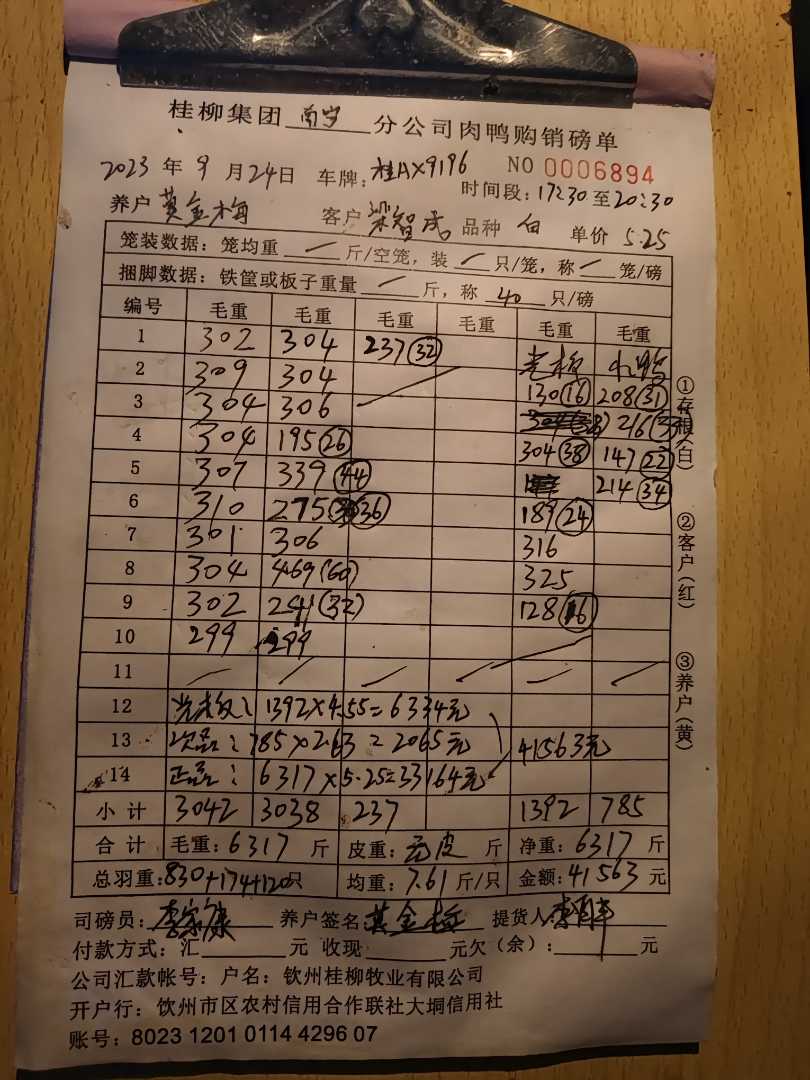 桂柳集团 南宁 分公司肉鸭购销磅单
2023 年 9 月 24日 车牌: 桂AX9196 NO 0006894
时间段: 17:30 至 20:30
养户 黄金梅 客户 梁智成 品种 白 单价 5.25
笼装数据: 笼均重 — 斤/空笼, 装 — 只/笼, 称 — 笼/磅
捆脚数据: 铁筐或板子重量 — 斤, 称 40 只/磅
编号 毛重 毛重 毛重 毛重 毛重 毛重
1 302 304 237(32) 光板 小鸭
2 309 304 130(16) 208(31)
3 304 306 216
4 304 195(26) 304(38) 147(22)
5 307 339(44) 214(34)
6 310 275 (36) 189(24)
7 301 306 316
8 304 469(60) 325
9 302 241(32) 128(16)
10 299 299
11
12 光板: 1392×4.55=6334元
13 次品: 785×2.63=2065元 41563元
14 正品: 6317×5.25=33164元
小计 3042 3038 237 1392 785
合计 毛重: 6317 斤 皮重: 无皮 斤 净重: 6317 斤
总羽重: 830+174+120只 均重: 7.61 斤/只 金额: 41563 元
司磅员: 李家康 养户签名 黄金梅 提货人:
付款方式: 汇 元 收现 元欠(余): 元
公司汇款帐号: 户名: 钦州桂柳牧业有限公司
开户行: 饮州市区农村信用合作联社大垌信用社
账号: 8023 1201 0114 4296 07
①存根(白)
②客户(红)
③养户(黄)